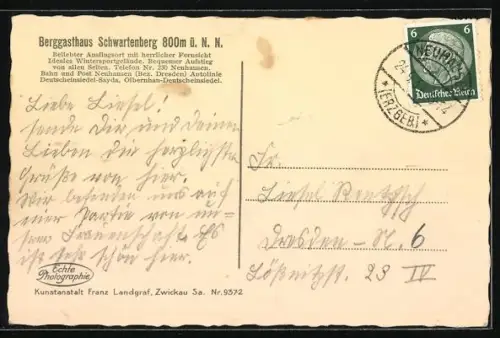 Berggasthaus Schwartenberg 800m ü. N. N.
Beliebter Ausflugsort mit herrlicher Fernsicht
Ideales Wintersportgelände. Bequemer Aufstieg
von allen Seiten. Telefon Nr. 230 Neuhausen.
Bahn und Post Neuhausen (Bez. Dresden) Autolinie
Deutscheinsiedel-Sayda, Olbernhau-Deutscheinsiedel.
Liebe Liesel!
sende Dir und Deinen
Lieben die herzlichsten
Grüße von hier.
Wir befinden uns auf
einer Partie von un-
srer Frauenschaft. Es
ist sehr schön hier.
Echte
Photographie
Kunstanstalt Franz Landgraf, Zwickau Sa. Nr. 9372
6 6
Deutsches Reich
NEUHAUSEN
(ERZGEB.)
Fr.
Liesel
Dresden-N. 6
Lößnitzst. 23 IV